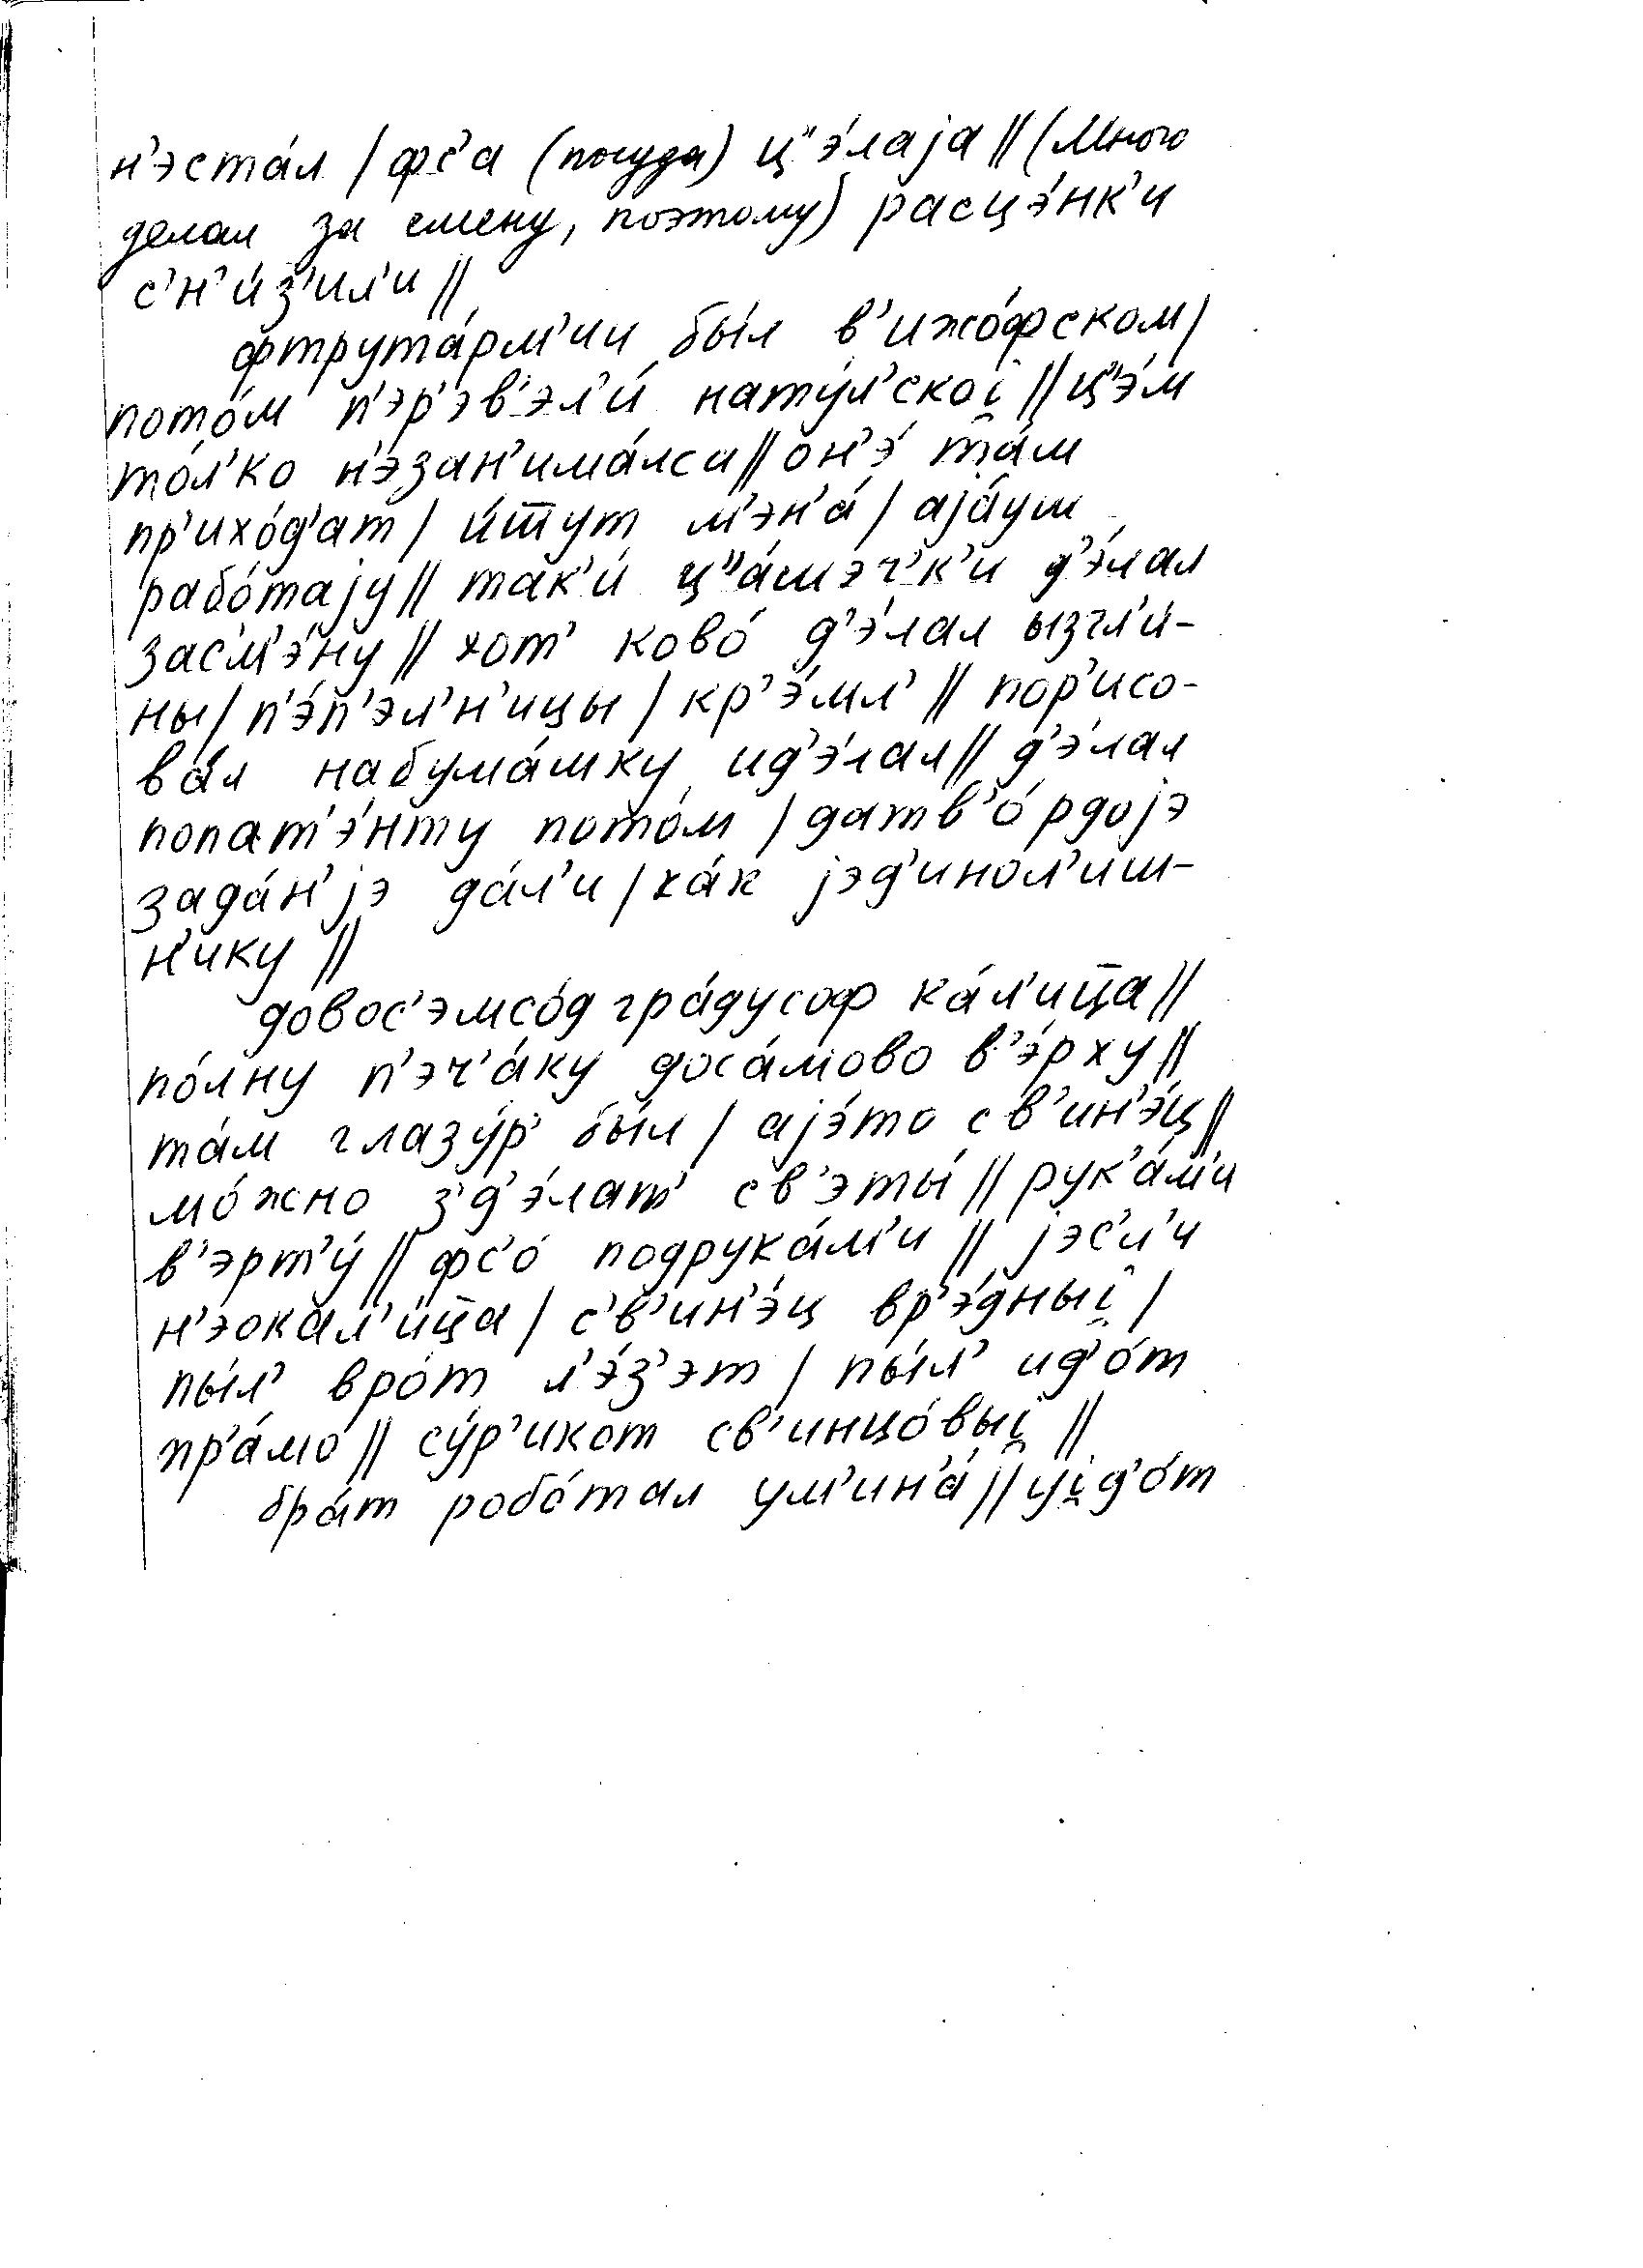 н'эста́л / фс'а (посуда) ц"э́лаjа // (Много
делал за смену, поэтому) расцэ́нк'и
с'н'и́з'ил'и //
фтрута́рм'ии бы́л в'ижо́фском /
пото́м п'эр'эв'эл'и́ нату́л'скоі̯ // ц"э́м
то́л'ко н'эзан'има́лса // он'э́ та́м
пр'ихо́д'ат / и́ш̅ут м'эн'а́ / аjа́уш
рабо́таjу // так'и́ ц"а́шэч'к'и д'э́лал
засм'э́ну // хот' ково́ д'э́лал ызгл'и́-
ны / п'э́п'эл'н'ицы / кр'э́мл' // пор'исо-
ва́л набума́шку ид'э́лал // д'э́лал
попат'э́нту пото́м / датв'о́рдоjэ
зада́н'jэ да́л'и / ка́к jэд'инол'и́ш-
н'ику //
довос'эмсо́д гра́дусоф ка́л'иц̅а //
по́лну п'эч'а́ку доса́мово в'э́рху //
та́м глазу́р' бы́л / аjэ́то св'ин'э́ц //
мо́жно з'д'э́лат' св'эты́ // рук'а́м'и
в'эрт'у́ // фс'о́ подрука́м'и // jэс'л'и
н'эокал'и́ц̅а / с'в'ин'э́ц вр'э́дныі̯ /
пы́л' вро́т л'э́з'эт / пы́л' ид'о́т
пр'а́мо // су́р'икот св'инцо́выі̯ //
бра́т робо́тал ум'ин'а́ // уі̯д'о́т